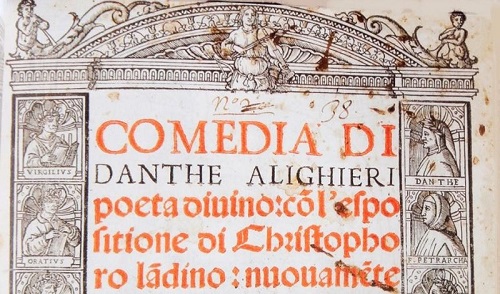 38.
COMEDIA DI
DANTHE ALIGHIERI
poeta diuino: cō l'eſpo
ſitione di Chriſtopho
ro lādino: nuouamēte
VIRGILIVS
DANTHE
ORATIVS
F. PETRARCHA